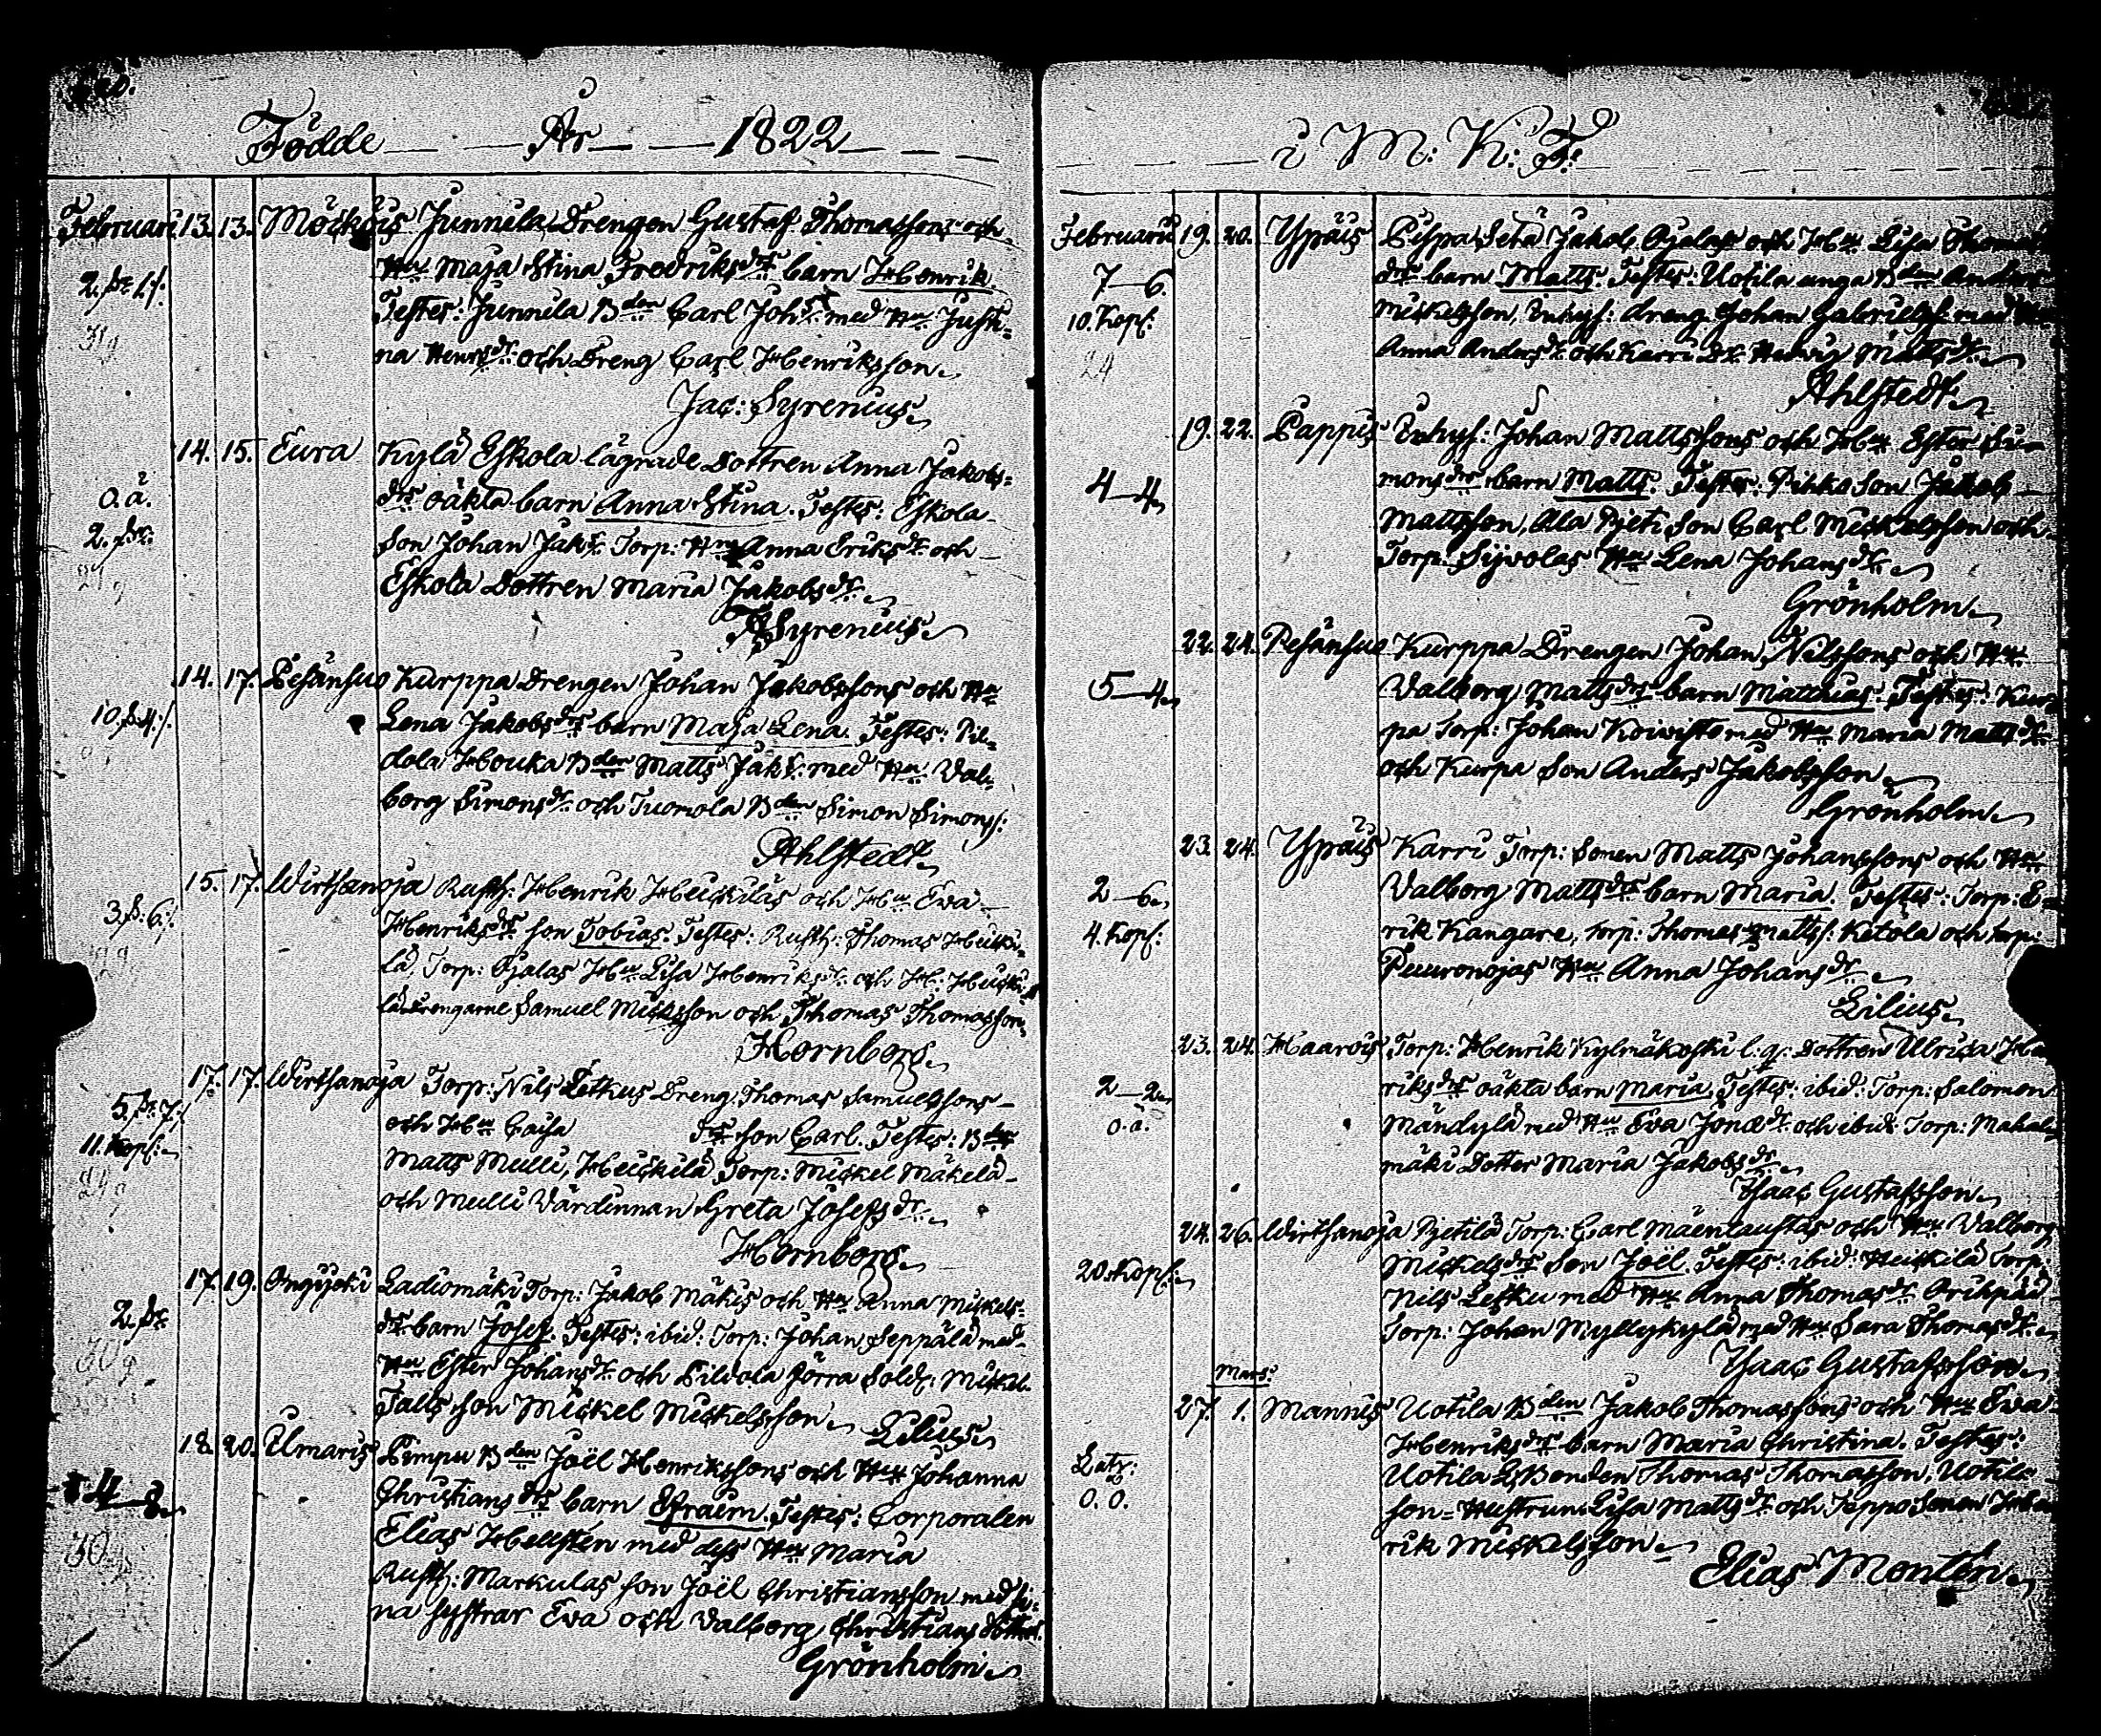 Födde År 1822
Februari 13. 13. Möckois Junnila Drengen Gustaf Thomassons och
Hu Maja Stina Fredriksdrs barn Henrik.
Testes: Junnila Bden Carl Joh:s: med Hu Justi-
na Henrsdr: och Dreng Carl Henriksson.
Jac: Syrenius.
14. 15. Eura Kylä Eskola lägrade Dottren Anna Jakobs-
o.ä. drs oäkta barn Anna Stina. Testes: Eskola
2. Son Johan Jaks: Torp: Hu Anna Eriksdr: och
Eskola Dottren Maria Jakobsdr.
Syrenius.
14. 17. Pesänsuo Kurppa Drengen Johan Jakobssons och Hu
Lena Jakobsdrs barn Maja Lena. Testes: Pil-
dola Houka Bden Matts Jaks: med Hu Val-
borg Simonsdr: och Tuomola Bden Simon Simonss:
Ahlstedt.
15. 17. Wirtsanoja Rusth: Henrik Heickiläs och Hu Ewa
3. 6. Henriksdrs son Tobias. Testes: Rusth: Thomas Heicki-
lä, Torp: Ojalas Hu Lisa Henriksdr: och H: Heicki-
lä Drengarne Samuel Micksson och Thomas Thomasson.
Hornborg.
17. 17. Wirtsanoja Torp: Nils Letkus Dreng Thomas Samuelssons
och Hu Caisa dr: son Carl. Testes: Bden
11. Kop: Matts Mulli, Heickilä Torp: Mickel Mäkelä
och Mulli Värdinnan Greta Josefsdr.
Hornborg.
17. 19. Ongijoki Ladiomäki Torp: Jakob Mäkis och Hu Anna Mickels-
2. dr: barn Josef. Testes: ibid: Torp: Johan Seppälä med
Hu Ester Johansdr: och Pilvola Sold: Mickel
Falls son Mickel Mickelsson. Lilius.
18. 20. Ilmaris Pimpu Bden Joël Henrikssons och Hu Johanna
Christiansdrs barn Efraim. Testes: Corporalen
Elias Hellsten med dess Hu Maria
Rusth: Markulas son Joël Christiansson med si-
na systrar Eva och Valborg Christians döttrar.
Grönholm.
i M: K: F:
Februarii 19. 20. Ypäis Pispa Jakob Ojalas och Hu Lisa Thomas
7—6. drs barn Matts. Testes: Uotila unga Bden Anders
10. Kop: Mickelsson, Inhys: dreng Johan Gabrielss: med Hu
24 Anna Andersdr: och Karri Dr: Hedvig Mattsdr.
Ahlstedt.
19. 22. Pappis Inhys: Johan Mattssons och Hu Ester Si-
4—4. monsdrs barn Matts. Testes: Pihka Son Jakob
Mattsson, Ala Pjeti Son Carl Mickelsson och
Torp: Sijvolas Hu Lena Johansdr.
Grönholm.
22. 24. Pesänsuo Kurppa Drengen Johan Nilssons och Hu
5—4. Valborg Mattsdrs barn Matthias. Testes: Kurp-
pa Torp: Johan Koivisto med Hu Maria Mattsdr:
och Kurpa Son Anders Jakobsson.
Grönholm.
23. 24. Ypäis Karri Torp: Sonen Matts Johanssons och Hu
2—6. Valborg Mattsdrs barn Maria. Testes: Torp: E-
4. Kop: rik Kangare, Torp: Thomas Mattss: Ketola och Torp:
Puuronojas Hu Anna Johansdr.
Lilius.
23. 24. Haarois Torp: Henrik Kylmäkoski l: gr: Dottren Ulrica Hen
2—2. riksdrs oäkta barn Maria, Testes: ibid: Torp: Salomon
o.ä. Mändylä med Hu Eva Jonædr: och ibid: Torp: Mahala-
mäki Dotter Maria Jakobsdr.
Isaac Gustafsson.
24. 26. Wirtsanoja Pjetilä Torp: Carl Mäenlaustas och Hu Valborg
20. Kop: Mickelsdrs Son Joël. Testes: ibid: Heickilä Torp:
Nils Letku med Hu Anna Thomasdr: Orihpää
Torp: Johan Myllykylä med Hu Sara Thomasdr.
Isaac Gustafsson.
Mars:
27. 1. Mannis Uotila Bden Jakob Thomassons och Hu Ewa
Henriksdrs barn Maria Christina. Testes:
Uotila Bonden Thomas Thomasson, Uotila
o. o. son-Hustrun Lisa Mattsdr: och Jeppo Sonen Hen
rik Mickelsson.
Elias Montin.